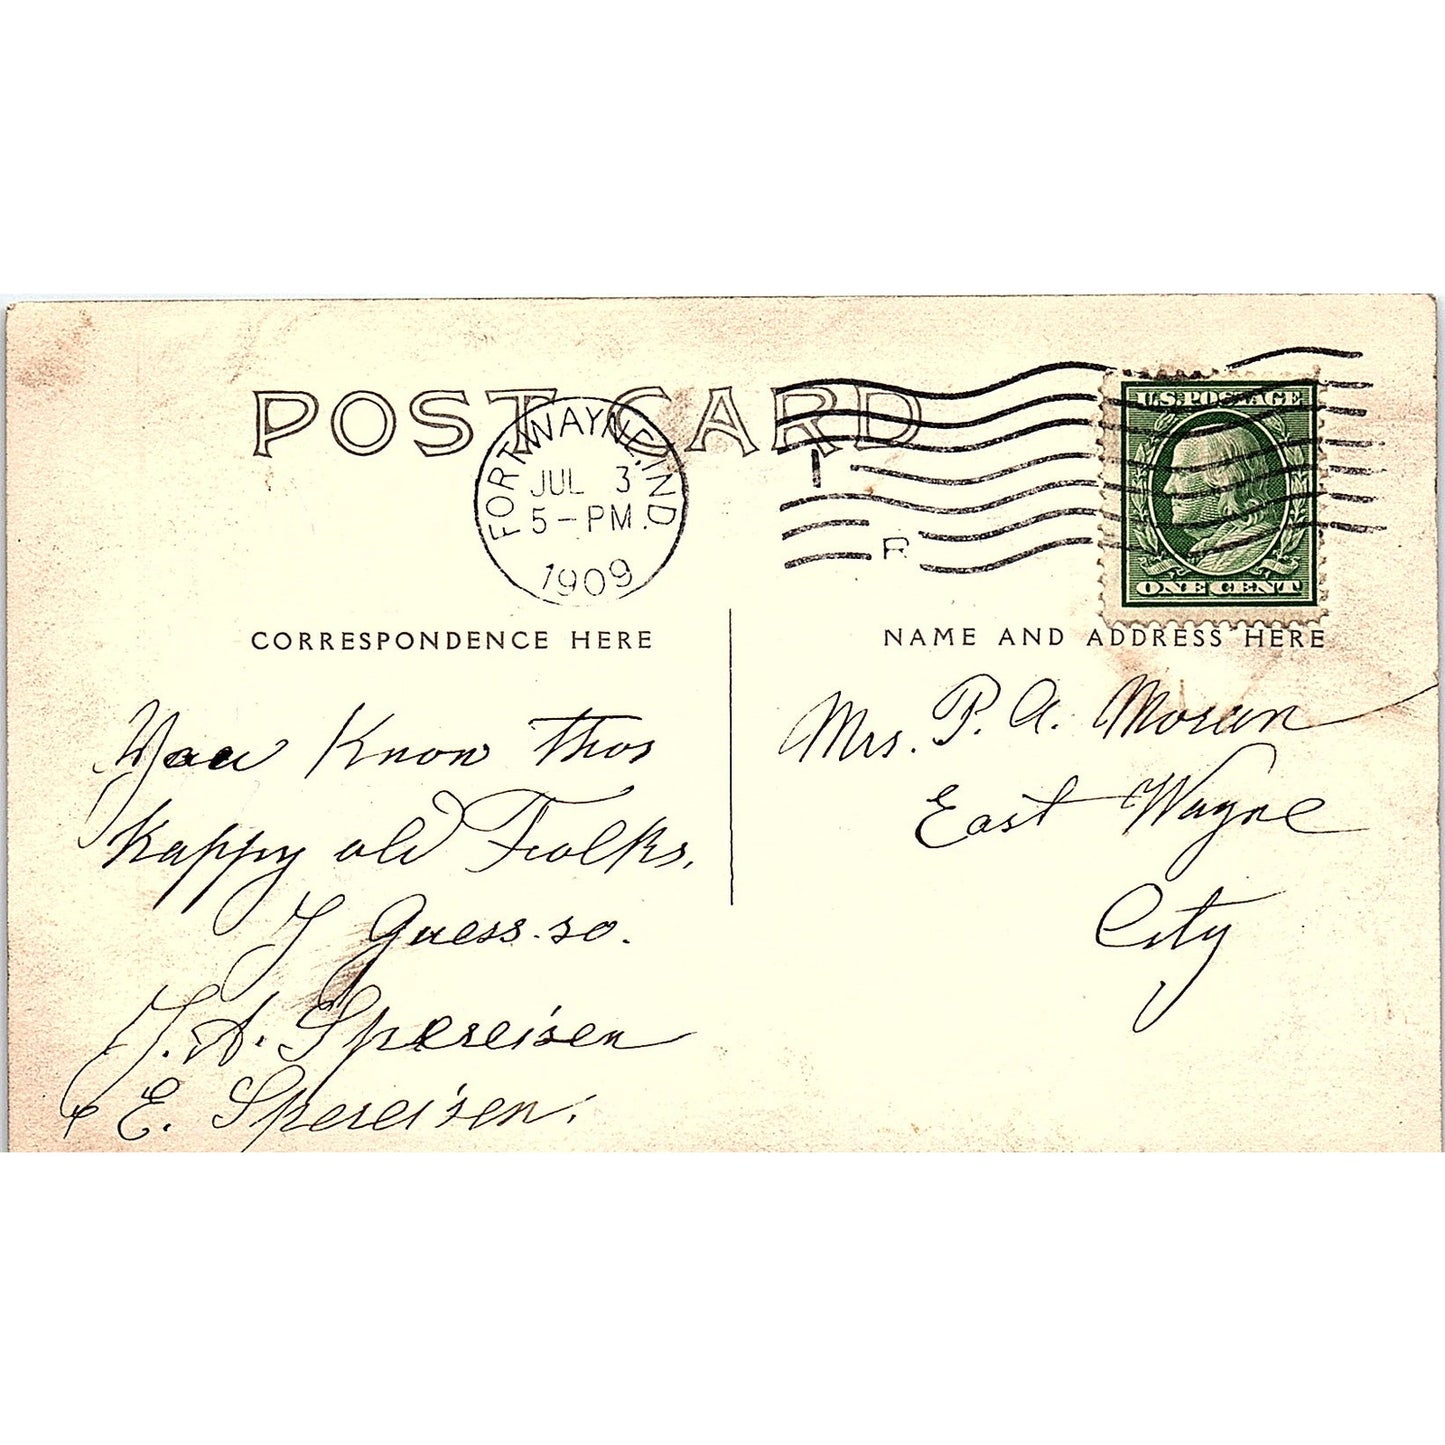 POST CARD
FORT WAYNE, IND
JUL 3
5-PM
1909
I
R
U.S. POSTAGE
ONE CENT
CORRESPONDENCE HERE
NAME AND ADDRESS HERE
You Know Thos
Happy old Folks,
I Guess-so.
J. A. Spereisen
& E. Spereisen.
Mrs. P. A. Moran
East Wayne
City